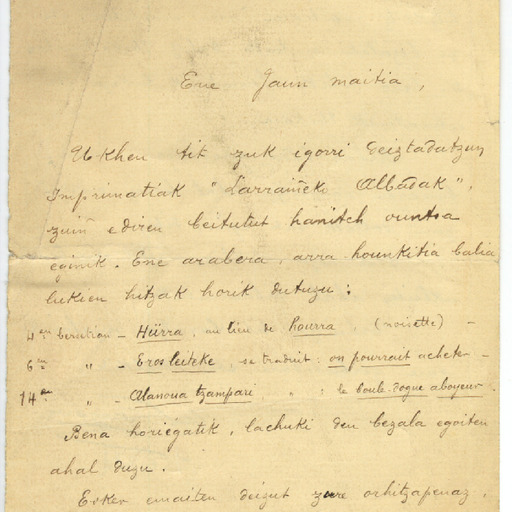 Ene Jaun maitia,
Ukhen tit zuk igorri deiztadatzun
Imprimatiak "Larraiñeko Albadak",
zuiñ ediren beitutut hanitch ountsa
eginik. Ene arabera, arra-hounkitia balia
lukien hitzak horik dutuzu :
4en bersetian - Hürra, au lieu de hourra (noisette) -
6en " - Eros leiteke, se traduit: on pourrait acheter -
14en " - Alanoua tzampari " " : le boule-dogue aboyeur.
Bena horiegatik, lachuki den bezala egoiten
ahal duzu.
Esker emaiten deizut zure orhitzapenaz,